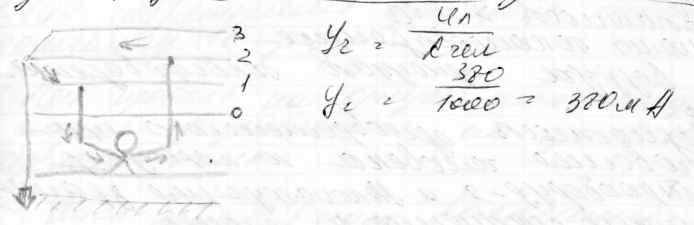 3
2
1
0
Уг = Uл / Rчел
Уг = 380 / 1000 = 380 мА